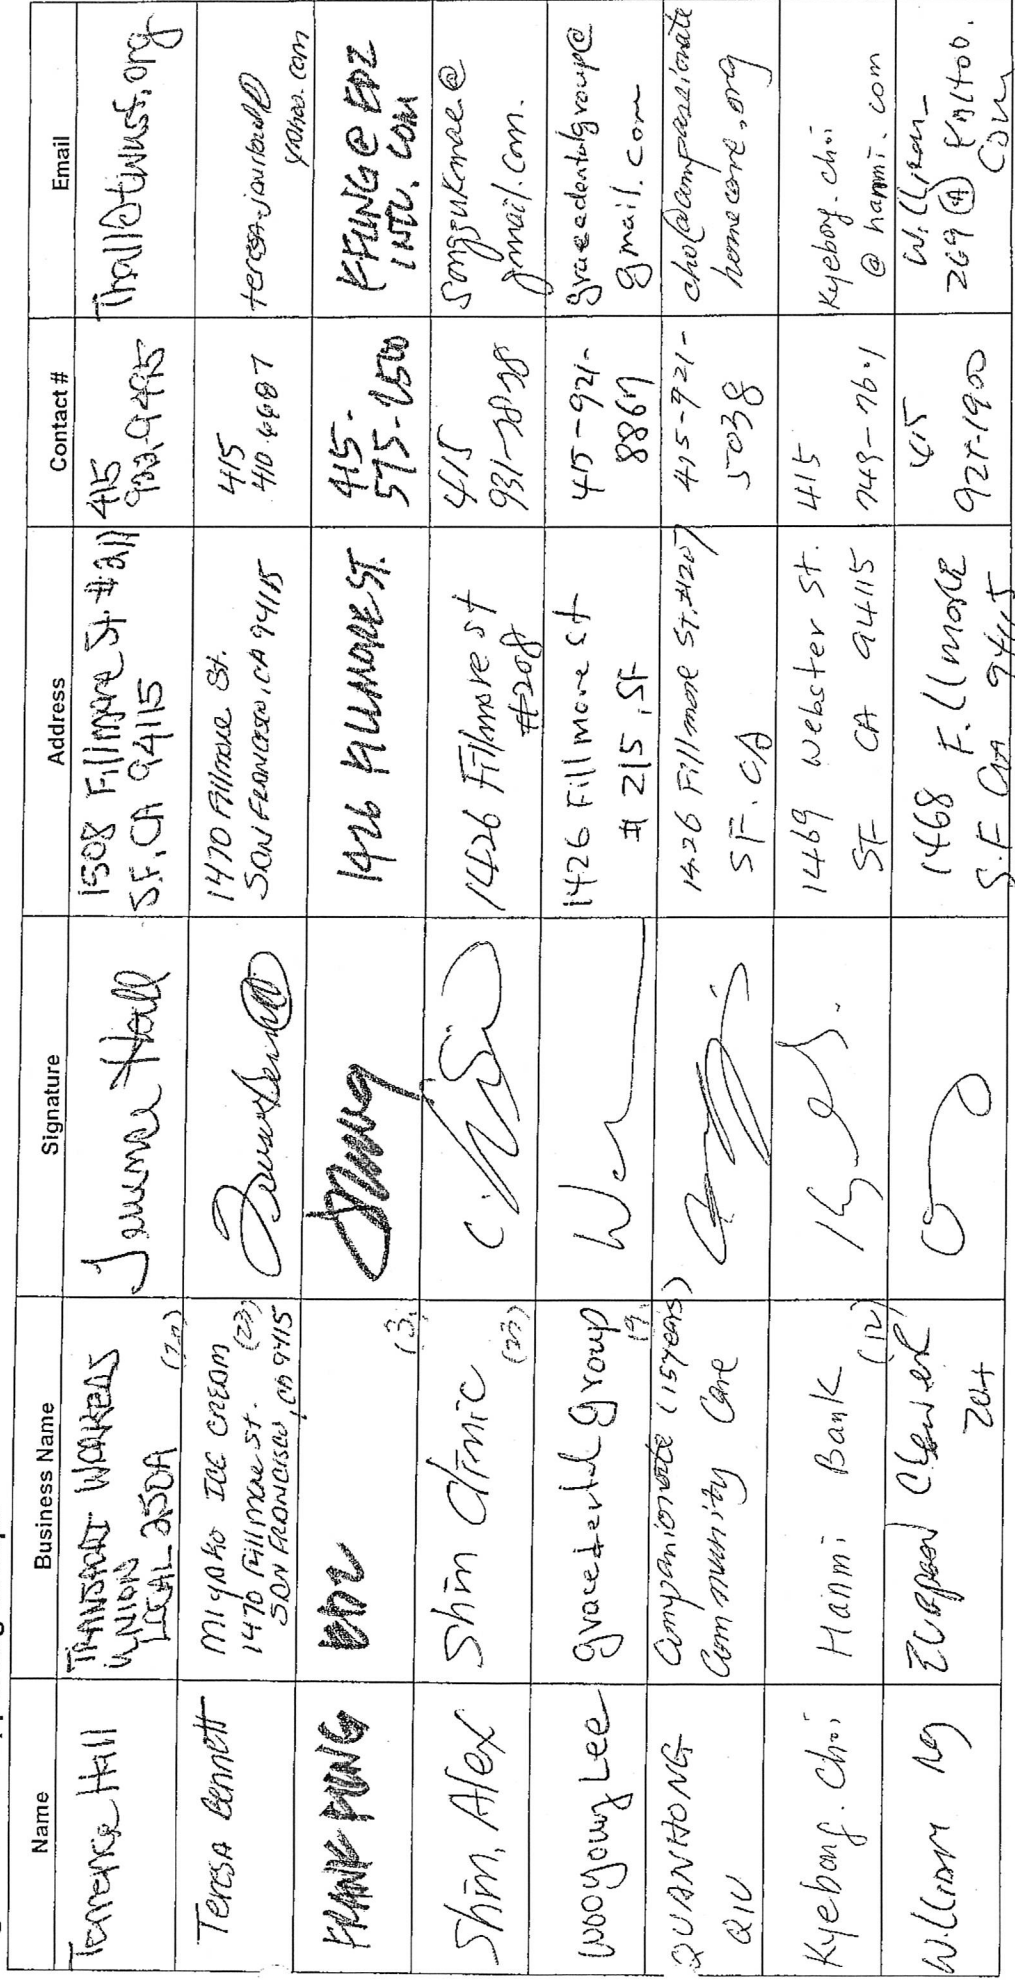 Name
Business Name
Signature
Address
Contact #
Email
Terrence Hall
TRANSPORT WORKERS
UNION
LOCAL 250A
(20)
Terrence Hall
1508 Fillmore St. #211
S.F, CA 94115
415
922-9495
Thall@twust.org
Teresa Bennett
MIYAKO ICE CREAM
(23)
1470 Fillmore St.
SAN FRANCISCO, CA 94115
1470 Fillmore St.
SAN FRANCISCO, CA 94115
415
410-6687
yahoo.com
FRANK FUNG
(3)
1426 FILLMORE ST.
415-
595-2500
KFUNG@EDZ
INTL.COM
Shim, Alex
Shim Clinic
(23)
1426 Fillmore st
#208
415
931-7878
songsukmae@
gmail.com.
Wooyoung Lee
gracedental group
(9)
1426 Fillmore st
# 215, SF
415-921-
8867
gracedentalgroup@
gmail.com
QUANHONG
QIU
Compassionate (15 years)
Community Care
1426 Fillmore St, #207
SF. CA
415-921-
5038
cho@compassionate
homecare.org
Kyebong. Choi
Hanmi Bank
(12)
1469 Webster St.
SF CA 94115
415
749-7601
Kyebong.choi
@hanmi.com
William Ng
1468 Fillmore
S.F CA 94115
415
921-1900